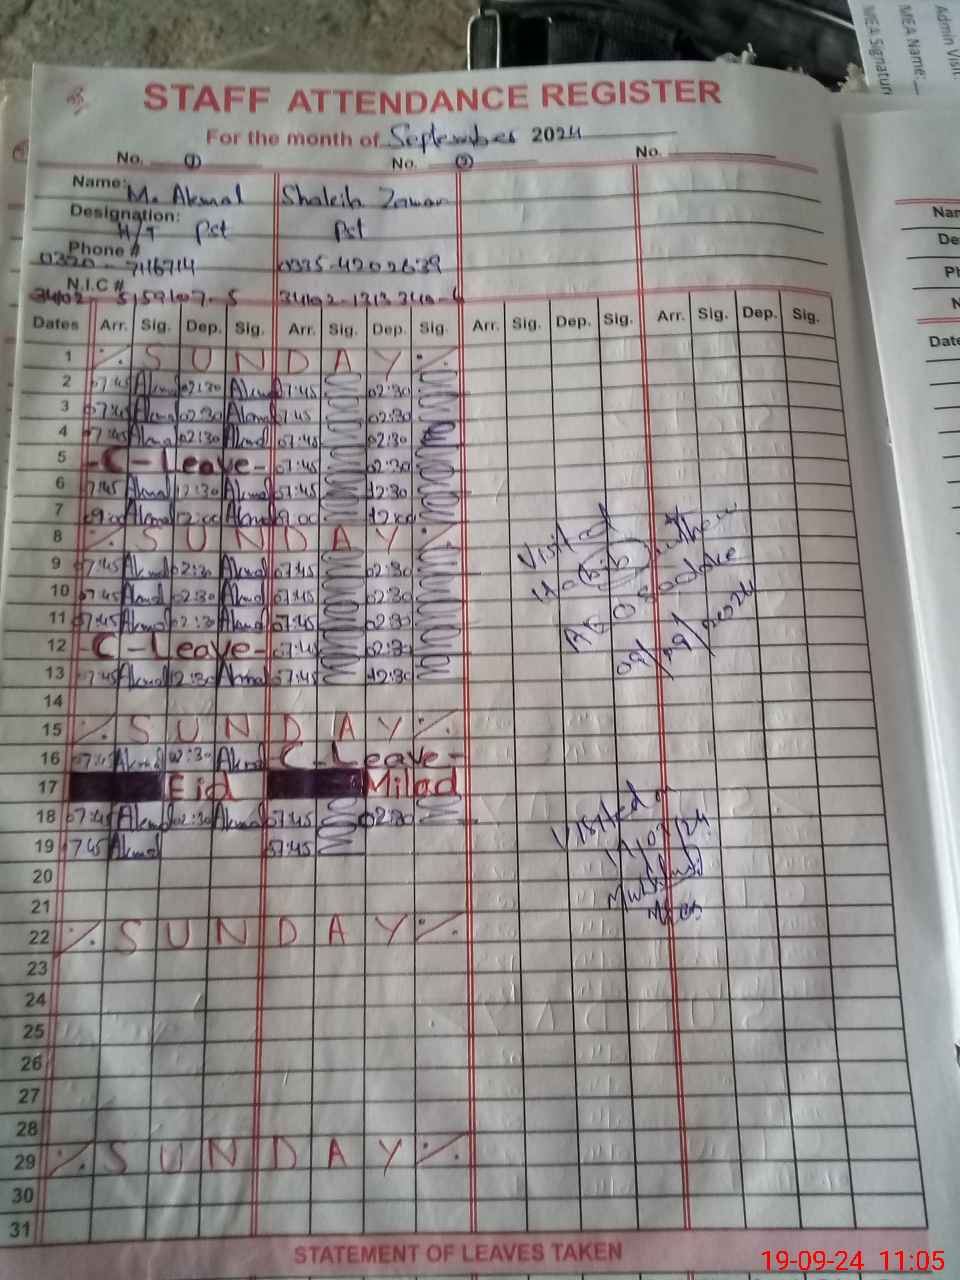 Admin Visit:
MEA Name:
MEA Signature
STAFF ATTENDANCE REGISTER
For the month of September 2024
No. 1 No. 2 No.
Name: M. Akmal Shakila Zaman
Designation: H/T Pst Pst
Phone # 0320-7116714 0335-4202639
N.I.C #
Dates Arr. Sig. Dep. Sig. Arr. Sig. Dep. Sig. Arr. Sig. Dep. Sig. Arr. Sig. Dep. Sig.
1 SUNDAY
2 07:45 Akmal 02:30 Akmal 07:45 02:30
3 07:45 Akmal 02:30 Akmal 07:45 02:30
4 07:45 Akmal 02:30 Akmal 07:45 02:30
5 -C-Leave- 07:45 02:30
6 07:45 Akmal 12:30 Akmal 07:45 12:30
7 09:00 Akmal 12:00 Akmal 09:00 12:00
8 SUNDAY
9 07:45 Akmal 02:30 Akmal 07:45 02:30
10 07:45 Akmal 02:30 Akmal 07:45 02:30
11 07:45 Akmal 02:30 Akmal 07:45 02:30
12 -C-Leave- 07:45 02:30
13 07:45 Akmal 12:30 Akmal 07:45 12:30
14
15 SUNDAY
16 07:45 Akmal 02:30 Akmal C-Leave-
17 Eid Milad
18 07:45 Akmal 02:30 Akmal 07:45 02:30
19 7:45 Akmal 07:45
20
21
22 SUNDAY
23
24
25
26
27
28
29 SUNDAY
30
31
Visited
AEO
09/09/2024
Visited
STATEMENT OF LEAVES TAKEN
19-09-24 11:05